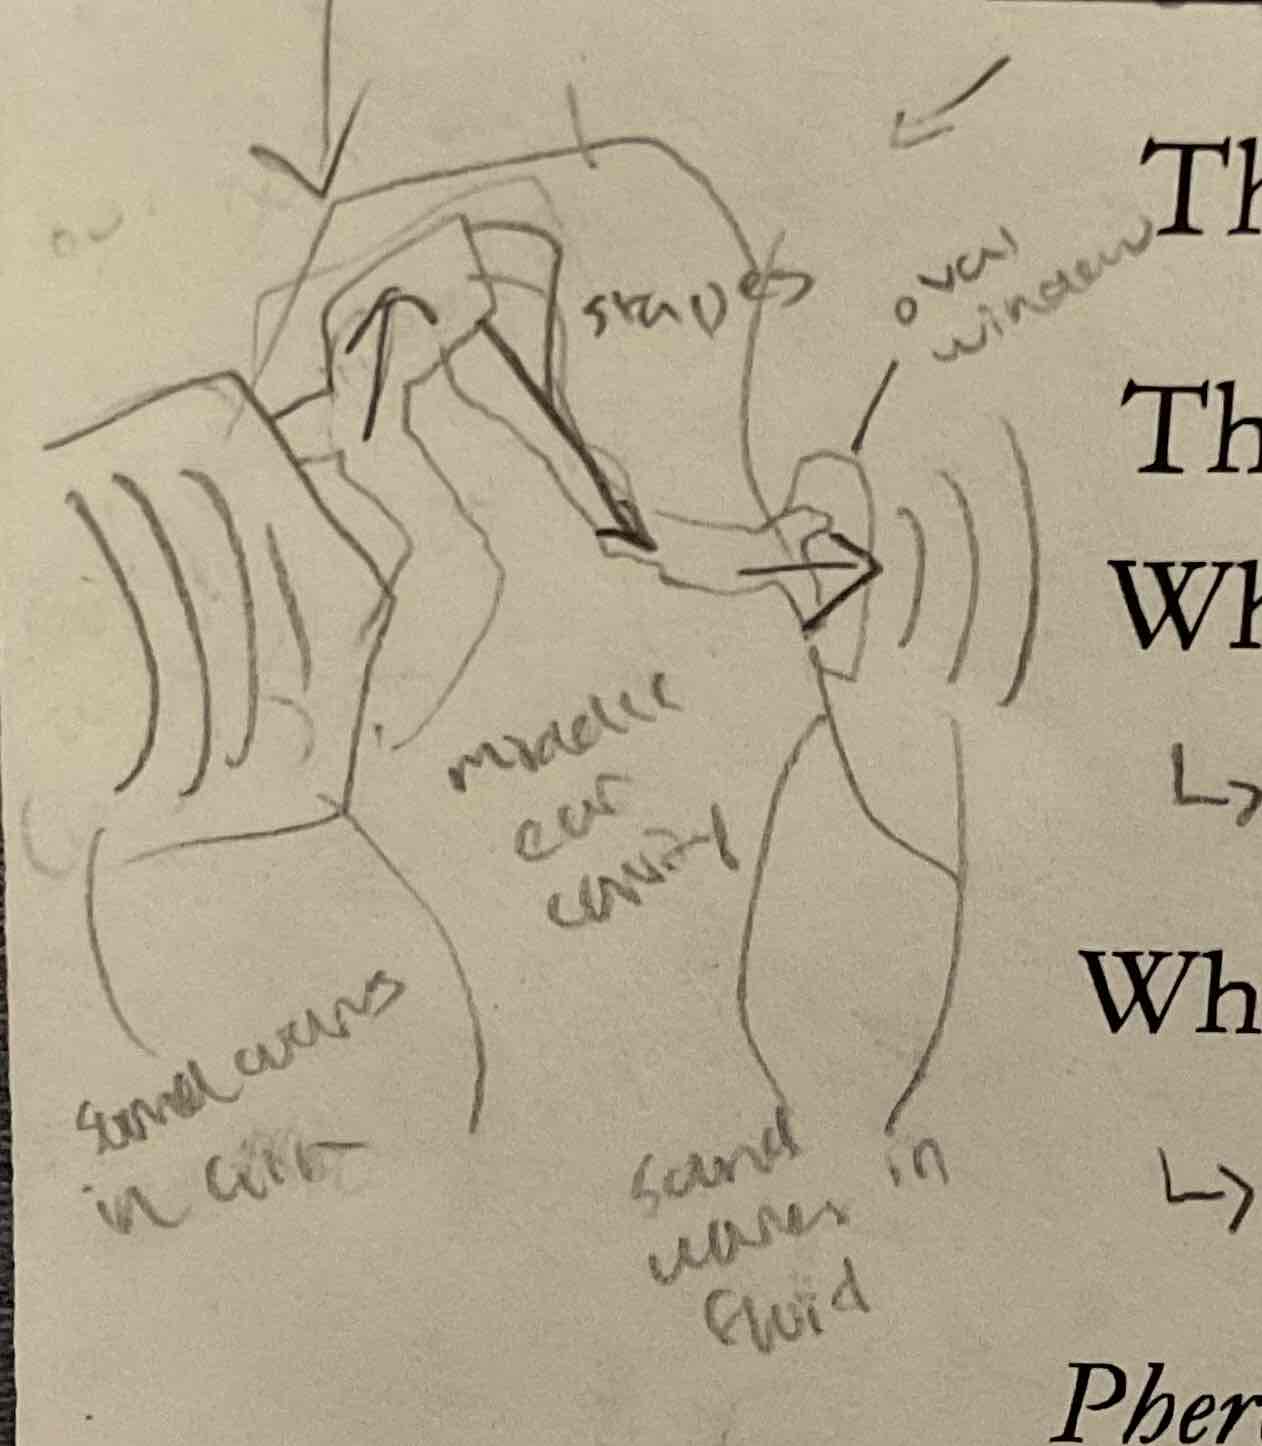 Th
stapes
oval
window
Th
Wh
middle
ear
cavity
Wh
sound waves
in air
sound
waves in
fluid
Pher